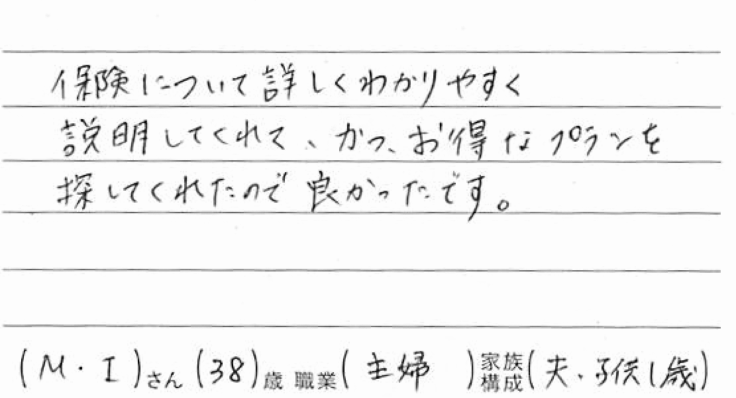 保険について詳しくわかりやすく
説明してくれて、かつ、お得なプランを
探してくれたので良かったです。
(M・I)さん(38)歳 職業(主婦 )家族構成(夫・子供1歳)